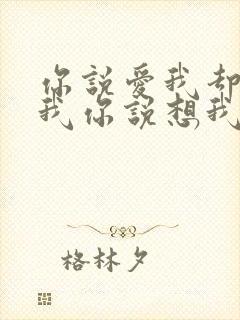 你說愛我却
我你說想我
格林夕